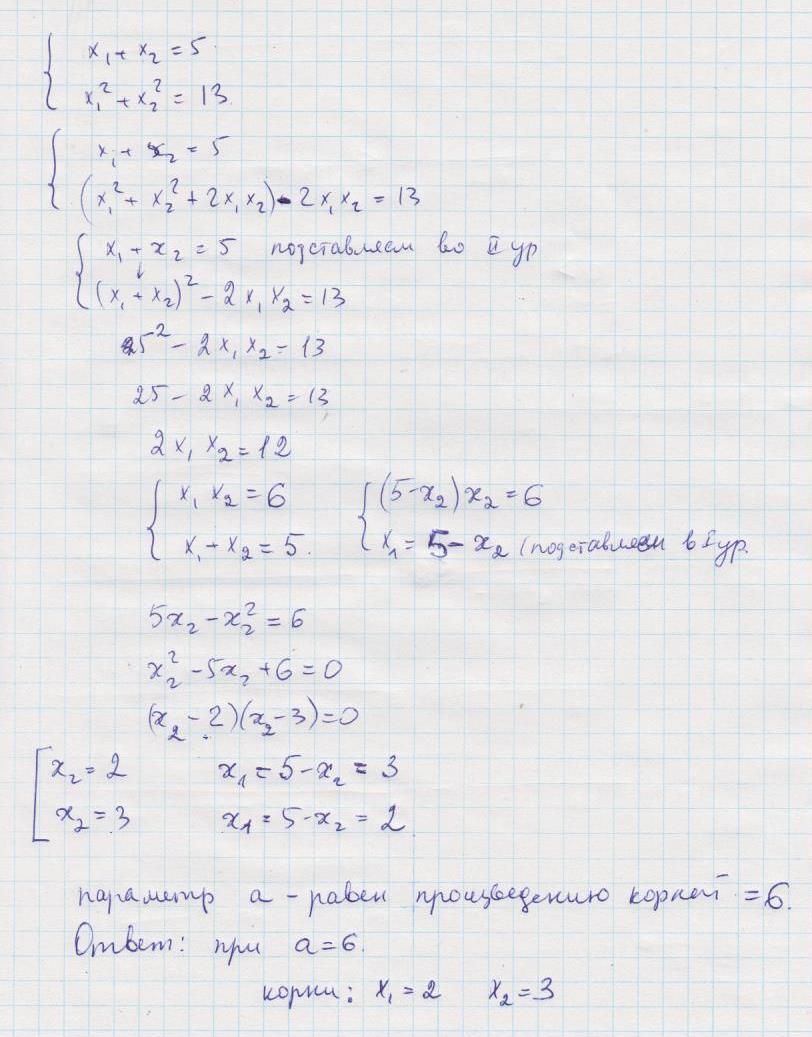 x₁ + x₂ = 5
x₁² + x₂² = 13
x₁ + x₂ = 5
(x₁² + x₂² + 2x₁x₂) - 2x₁x₂ = 13
x₁ + x₂ = 5 подставляем во II ур
(x₁ + x₂)² - 2x₁x₂ = 13
5² - 2x₁x₂ = 13
25 - 2x₁x₂ = 13
2x₁x₂ = 12
x₁x₂ = 6 (5-x₂)x₂ = 6
x₁ + x₂ = 5. x₁ = 5 - x₂ (подставляем в I ур.
5x₂ - x₂² = 6
x₂² - 5x₂ + 6 = 0
(x₂ - 2)(x₂ - 3) = 0
x₂ = 2 x₁ = 5 - x₂ = 3
x₂ = 3 x₁ = 5 - x₂ = 2
параметр a - равен произведению корней = 6.
Ответ: при a = 6.
корни: x₁ = 2 x₂ = 3